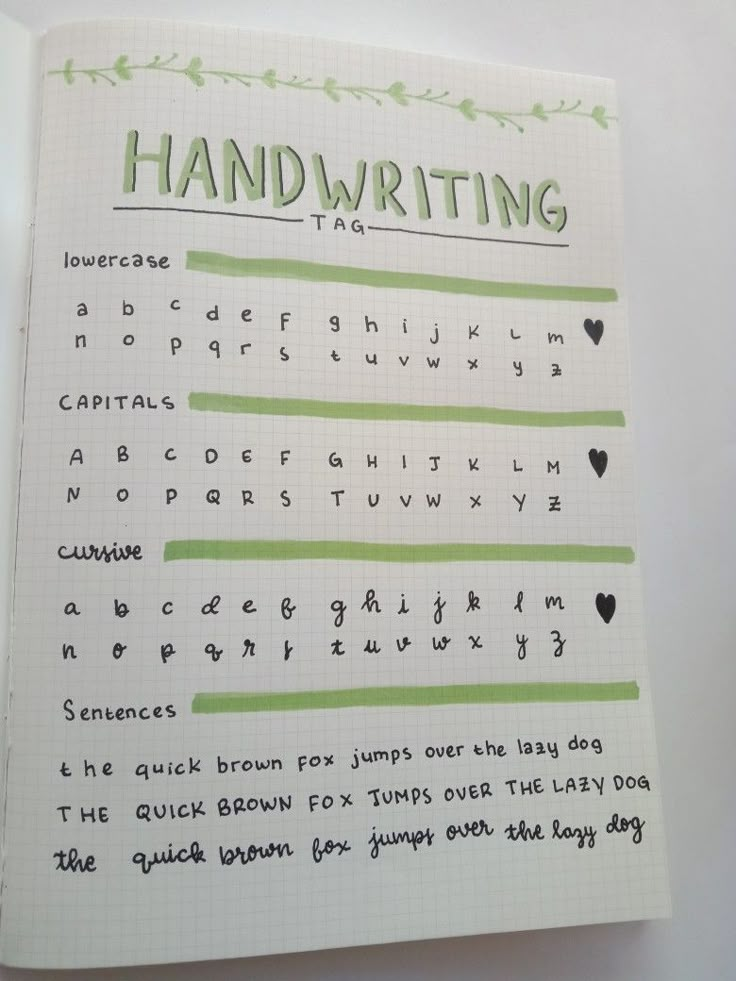 HANDWRITING
TAG
lowercase
a b c d e F g h i j K L m
n o p q r s t u v w x y z
CAPITALS
A B C D E F G H I J K L M
N O P Q R S T U V W X Y Z
cursive
a b c d e f g h i j k l m
n o p q r s t u v w x y z
Sentences
the quick brown Fox jumps over the lazy dog
THE QUICK BROWN FOX JUMPS OVER THE LAZY DOG
the quick brown fox jumps over the lazy dog